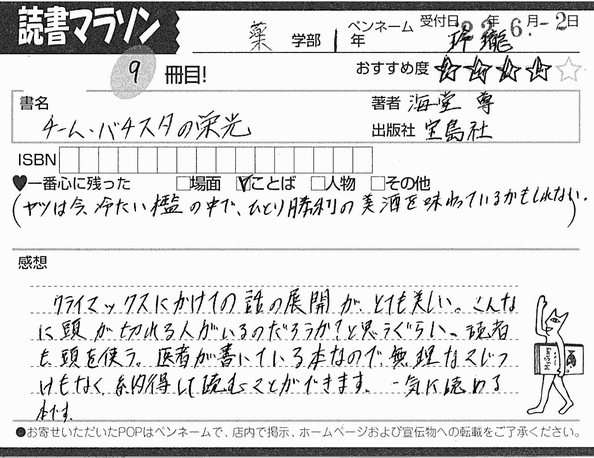 読書マラソン
薬 学部 1年 ペンネーム 玲瓏 受付日 22年6月-2日
9冊目!
おすすめ度 ★★★★☆
書名 チーム・バチスタの栄光
著者 海堂 尊
出版社 宝島社
ISBN
♥一番心に残った □場面 ☑ことば □人物 □その他
(ヤツは今、冷たい檻の中で、ひとり勝利の美酒を味わっているかもしれない。)
感想
クライマックスにかけての話の展開が、とても美しい。こんな
に頭が切れる人がいるのだろうか?と思うぐらい、読者
も頭を使う。医者が書いている本なので無理なこじつ
けもなく、納得して読むことができます。一気に読める
本です。
●お寄せいただいたPOPはペンネームで、店内で掲示、ホームページおよび宣伝物への転載をご了承ください。